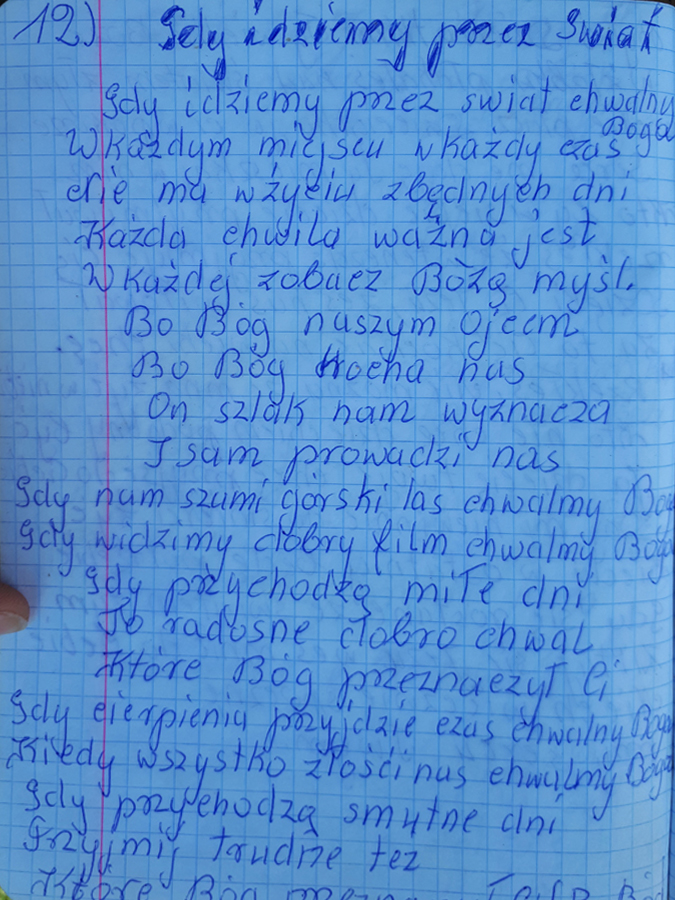 12) Gdy idziemy przez świat
Gdy idziemy przez swiat chwalmy
Boga
W każdym miejscu w każdy czas
Nie ma w życiu zbędnych dni
Każda chwila ważna jest
W każdej zobacz Bożą myśl.
Bo Bóg naszym Ojcem
Bo Bóg kocha nas
On szlak nam wyznacza
I sam prowadzi nas
Gdy nam szumi górski las chwalmy Boga
Gdy widzimy dobry film chwalmy Boga
Gdy przychodzą miłe dni
To radosne dobro chwal
Które Bóg przeznaczył Ci
Gdy cierpienia przyjdzie czas chwalmy Boga
Kiedy wszystko złości nas chwalmy Boga
Gdy przychodzą smutne dni
Przyjmij trudne też
Które Bóg